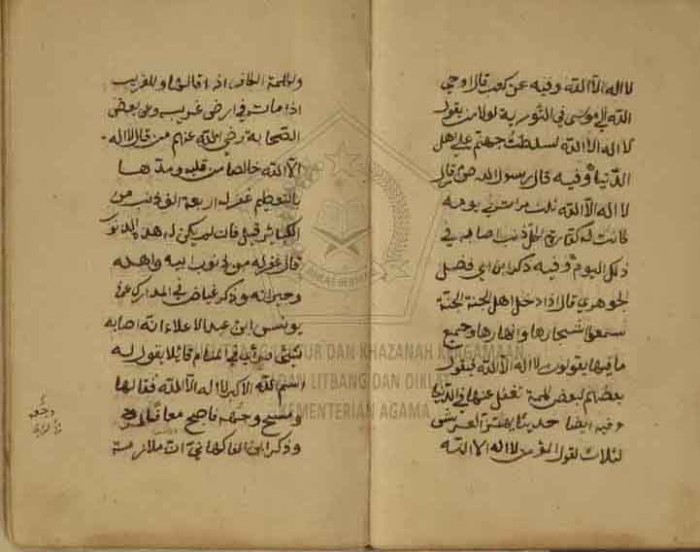 لا اله الا الله وفيه عن كعب قال اوحى
الله الى موسى في التورية لولا من يقول
لا اله الا الله لسلطت جهنم على اهل
الدنيا وفيه قال رسول الله من قال
لا اله الا الله ثلاث مرات في يومه
كانت له كفارة لكل ذنب اصابه في
ذلك اليوم وفيه ذكر ابن ابي فضل
الجوهري قال اذا دخل اهل الجنة الجنة
سمعوا اشجارها وانهارها وجميع
ما فيها يقولون لا اله الا الله فيقول
بعضهم لبعض كلمة نغفل عنها في الدنيا
وفيه ايضا حديث يهتز العرش
لثلاث لقول المؤمن لا اله الا الله
وكلمة الكافر اذا قالها وللغريب
اذا مات في ارض غريب وعن بعض
الصحابة رضي الله عنهم من قال لا اله
الا الله خالصا من قلبه ومدها
بالتعظيم غفر له اربعة الف ذنب من
الكبائر قيل فان لم يكن له هذه الذنوب
قال غفر له من ذنوب ابيه واهله
وجيرانه وذكر عياض في المدارك عن
يونس ابن عبد الاعلاء انه اصابه
شئ فرئي في المنام قائلا يقول له
اسم الله الاكبر لا اله الا الله فقالها
ومسح وجهه فاصبح معافا
وذكر ابن الفاكهاني ان ملازمة
PUSLITBANG LEKTUR DAN KHAZANAH KEAGAMAAN
BADAN LITBANG DAN DIKLAT
KEMENTERIAN AGAMA